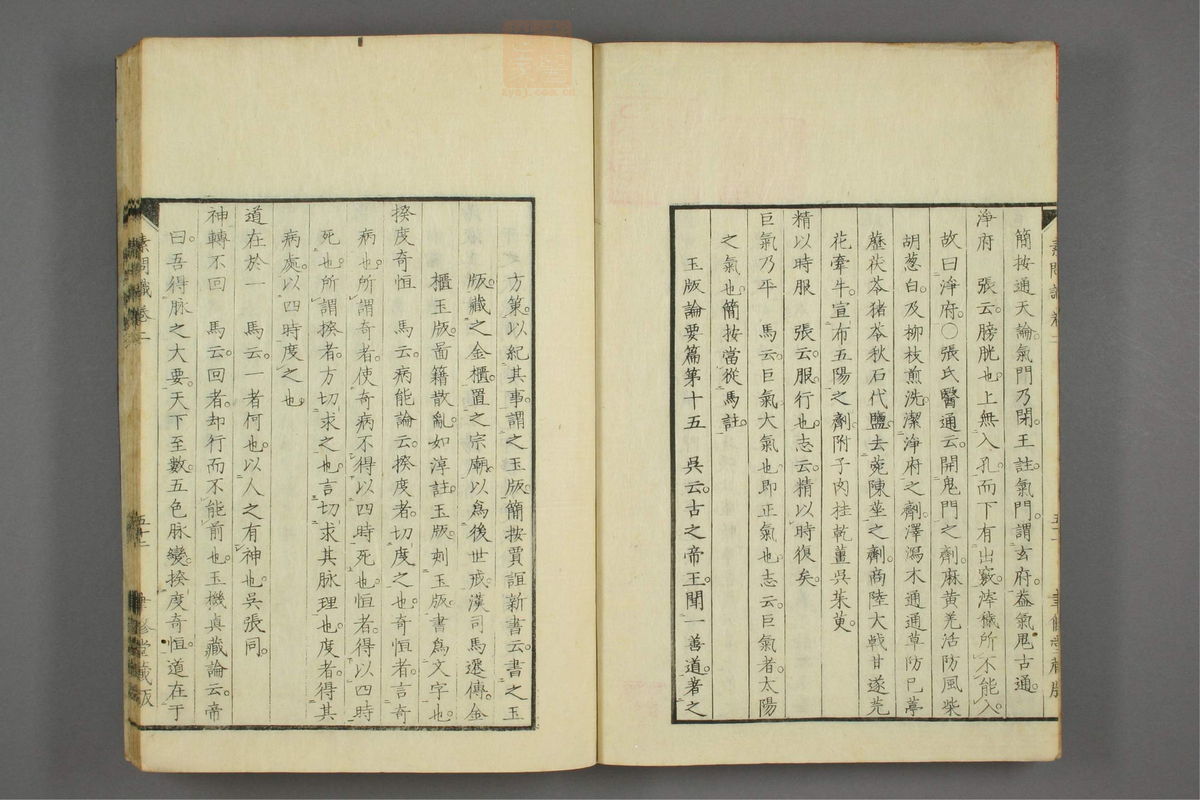 簡按通天論氣門乃閉王註氣門謂玄府葢氣鬼古通
淨府　張云膀胱也上無入孔而下有出竅滓穢所不能入
故曰淨府〇張氏醫通云開鬼門之劑麻黃羌活防風柴
胡葱白及柳枝煎洗潔淨府之劑澤瀉木通通草防巳葶
藶茯苓猪苓秋石代鹽去菀陳莝之劑商陸大戟甘遂芫
花牽牛宣布五陽之劑附子肉桂乾薑吳茱萸
精以時服　張云服行也志云精以時復矣
巨氣乃平　馬云巨氣大氣也即正氣也志云巨氣者太陽
之氣也簡按當從馬註
玉版論要篇第十五　吳云古之帝王聞一善道者之
方策以紀其事謂之玉版簡按賈誼新書云書之玉
版藏之金櫃置之宗廟以爲後世戒漢司馬遷傳金
櫃玉版啚籍散亂如淳註玉版刻玉版書爲文字也
揆度奇恒　馬云病能論云揆度者切度之也奇恒者言奇
病也所謂奇者使奇病不得以四時死也恒者得以四時
死也所謂揆者方切求之也言切求其脉理也度者得其
病處以四時度之也
道在於一　馬云一者何也以人之有神也吳張同
神轉不回　馬云回者却行而不能前也玉機眞藏論云帝
曰吾得脉之大要天下至數五色脉變揆度奇恒道在于
素問識卷二
聿修堂藏版